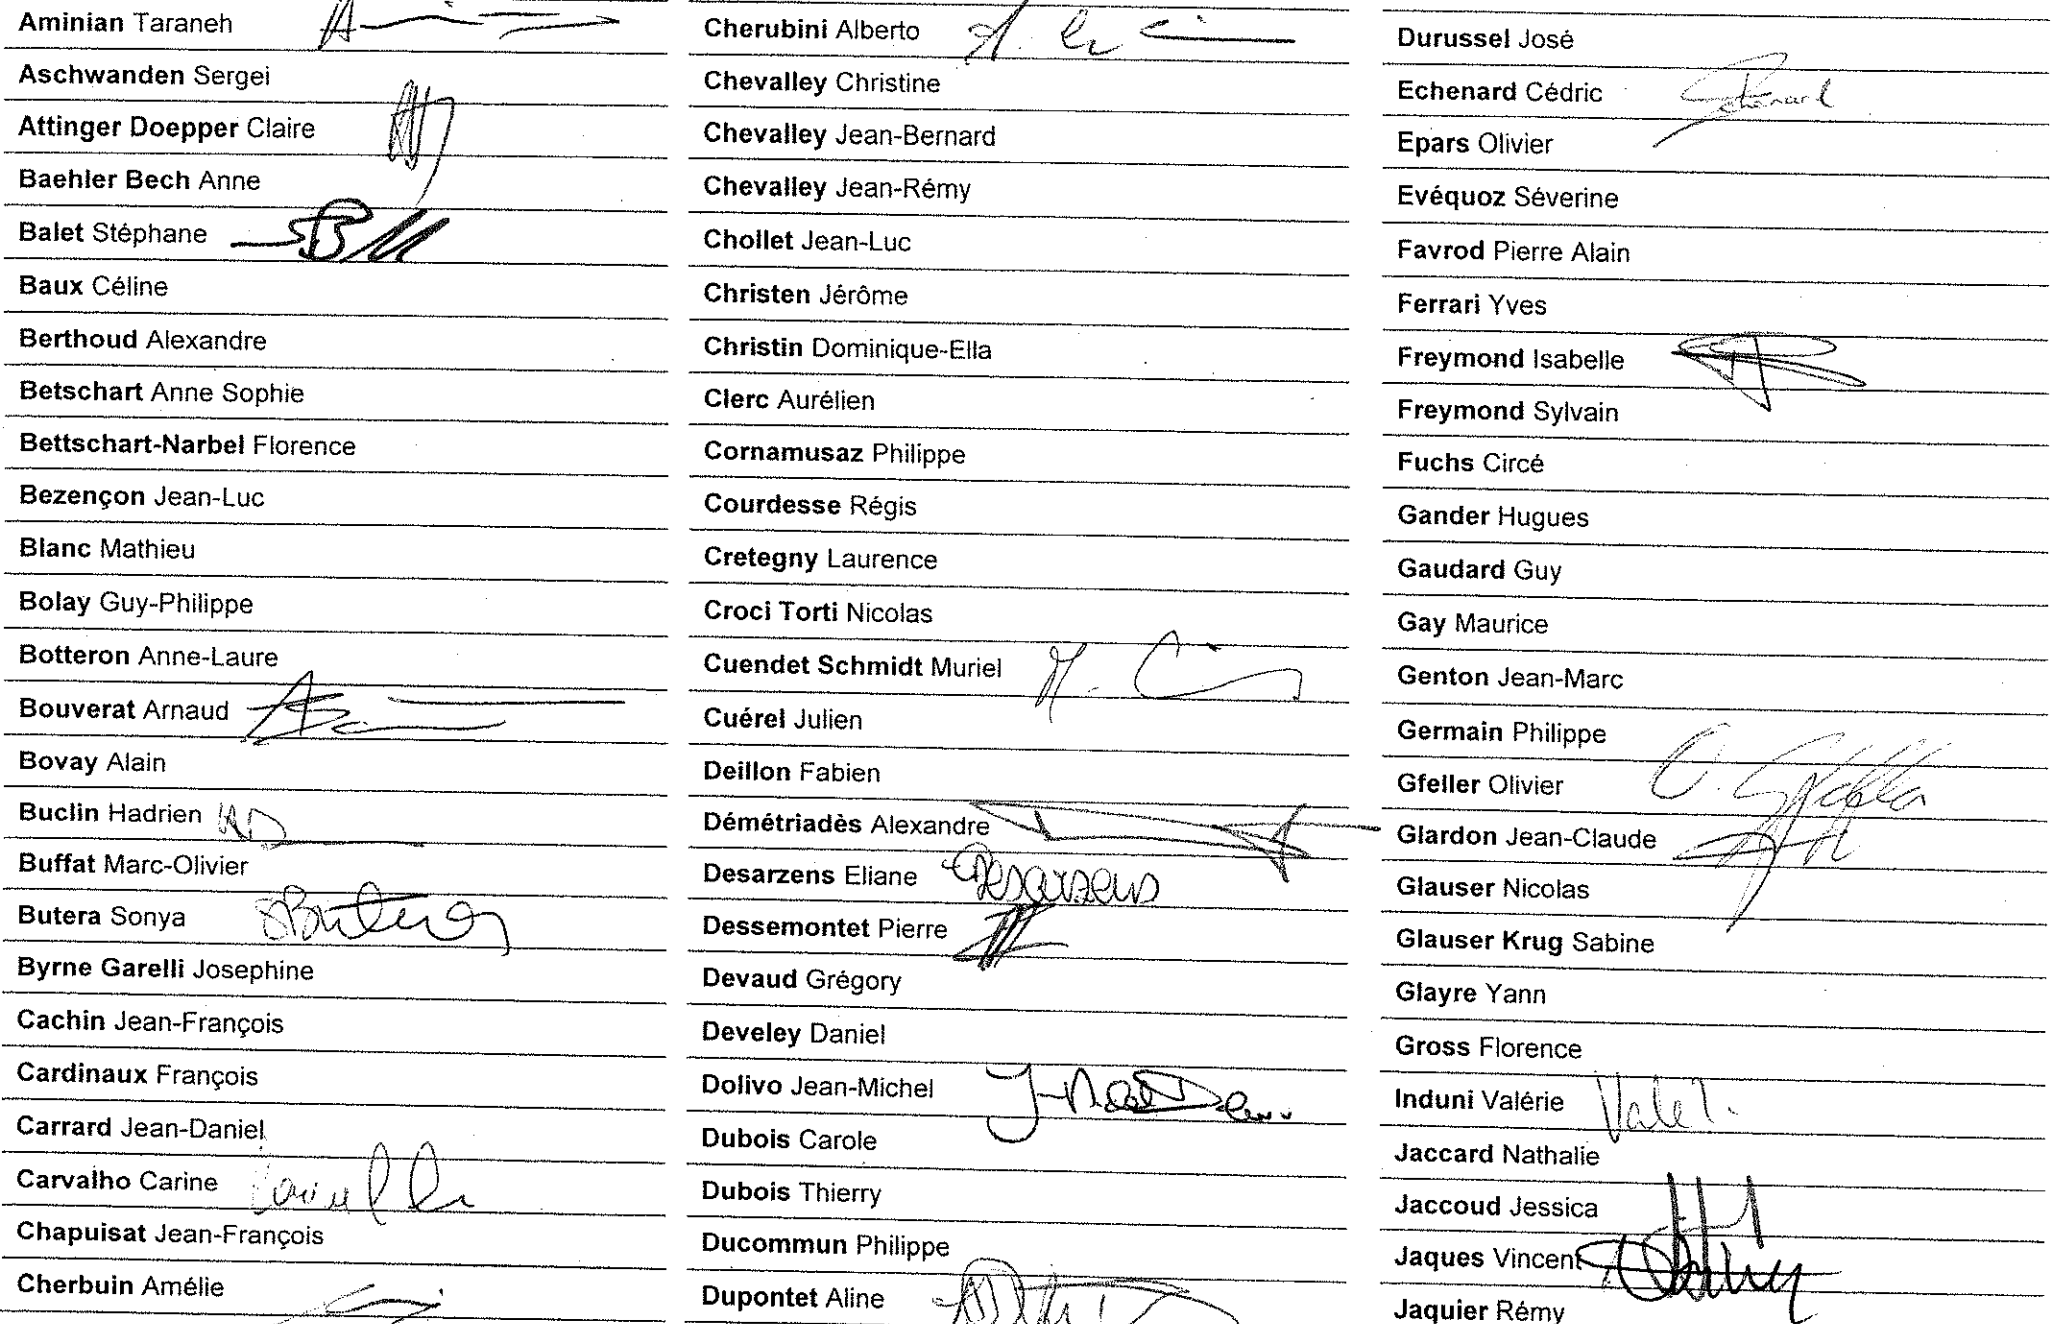 Aminian Taraneh
Aschwanden Sergei
Attinger Doepper Claire
Baehler Bech Anne
Balet Stéphane
Baux Céline
Berthoud Alexandre
Betschart Anne Sophie
Bettschart-Narbel Florence
Bezençon Jean-Luc
Blanc Mathieu
Bolay Guy-Philippe
Botteron Anne-Laure
Bouverat Arnaud
Bovay Alain
Buclin Hadrien
Buffat Marc-Olivier
Butera Sonya
SButera
Byrne Garelli Josephine
Cachin Jean-François
Cardinaux François
Carrard Jean-Daniel
Carvalho Carine
Chapuisat Jean-François
Cherbuin Amélie
Cherubini Alberto
Chevalley Christine
Chevalley Jean-Bernard
Chevalley Jean-Rémy
Chollet Jean-Luc
Christen Jérôme
Christin Dominique-Ella
Clerc Aurélien
Cornamusaz Philippe
Courdesse Régis
Cretegny Laurence
Croci Torti Nicolas
Cuendet Schmidt Muriel
Cuérel Julien
Deillon Fabien
Démétriadès Alexandre
Desarzens Eliane Desarzens
Dessemontet Pierre
Devaud Grégory
Develey Daniel
Dolivo Jean-Michel
Dubois Carole
Dubois Thierry
Ducommun Philippe
Dupontet Aline
Durussel José
Echenard Cédric Echenard
Epars Olivier
Evéquoz Séverine
Favrod Pierre Alain
Ferrari Yves
Freymond Isabelle
Freymond Sylvain
Fuchs Circé
Gander Hugues
Gaudard Guy
Gay Maurice
Genton Jean-Marc
Germain Philippe
Gfeller Olivier O. Gfeller
Glardon Jean-Claude
Glauser Nicolas
Glauser Krug Sabine
Glayre Yann
Gross Florence
Induni Valérie
Jaccard Nathalie
Jaccoud Jessica
Jaques Vincent
Jaquier Rémy